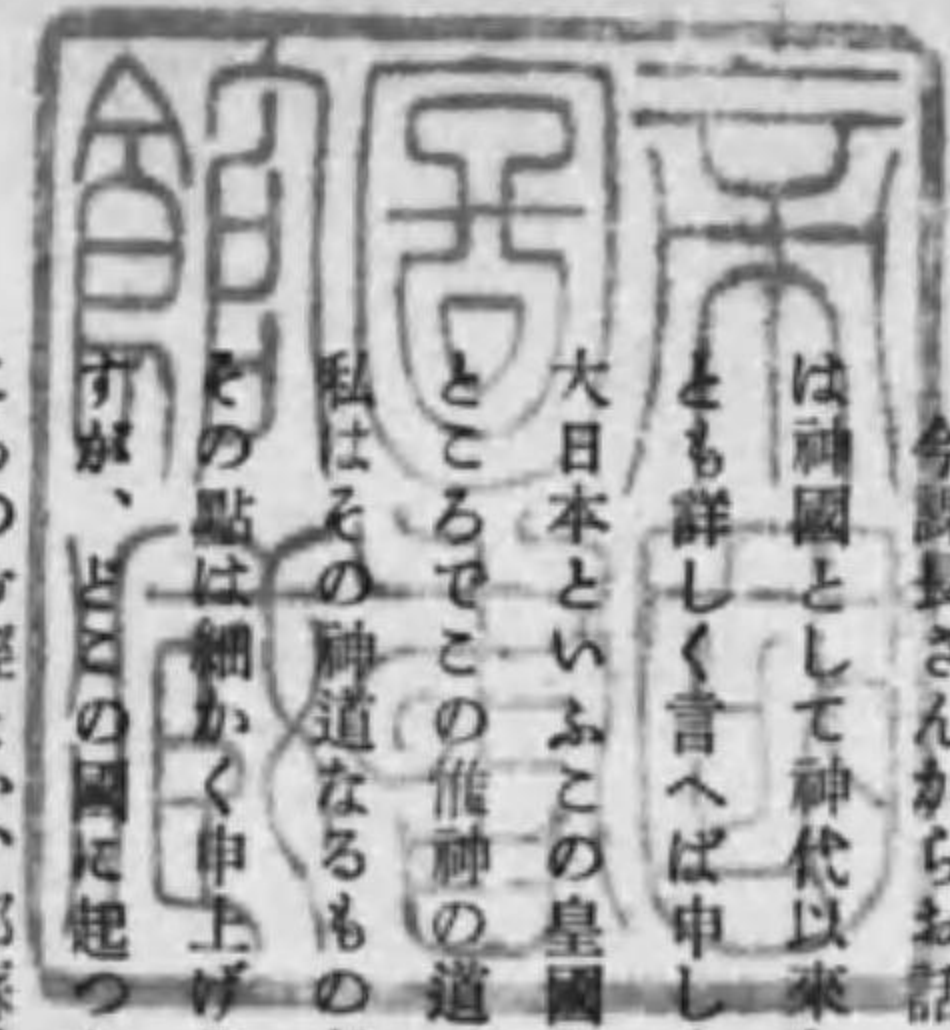 帝國
圖書
館藏
今議長さんからお話
は神國として神代以來
とも詳しく言へば申し
大日本といふこの皇國
ところでこの惟神の道
私はその神道なるもの
その點は細かく申上げ
すが、どこの國に起つ